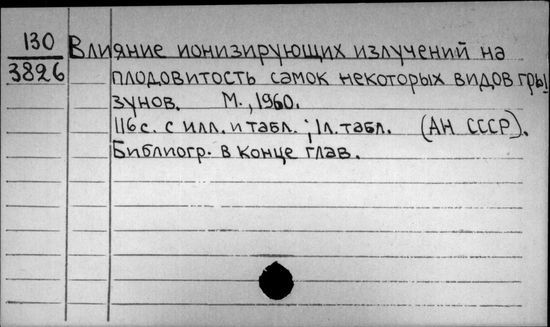 130
3826
Влияние ионизирующих излучений на
плодовитость самок некоторых видов гры
зунов. М., 1960.
116 с. с илл. и табл.; 1 л. табл. (АН СССР).
Библиогр. в конце глав.